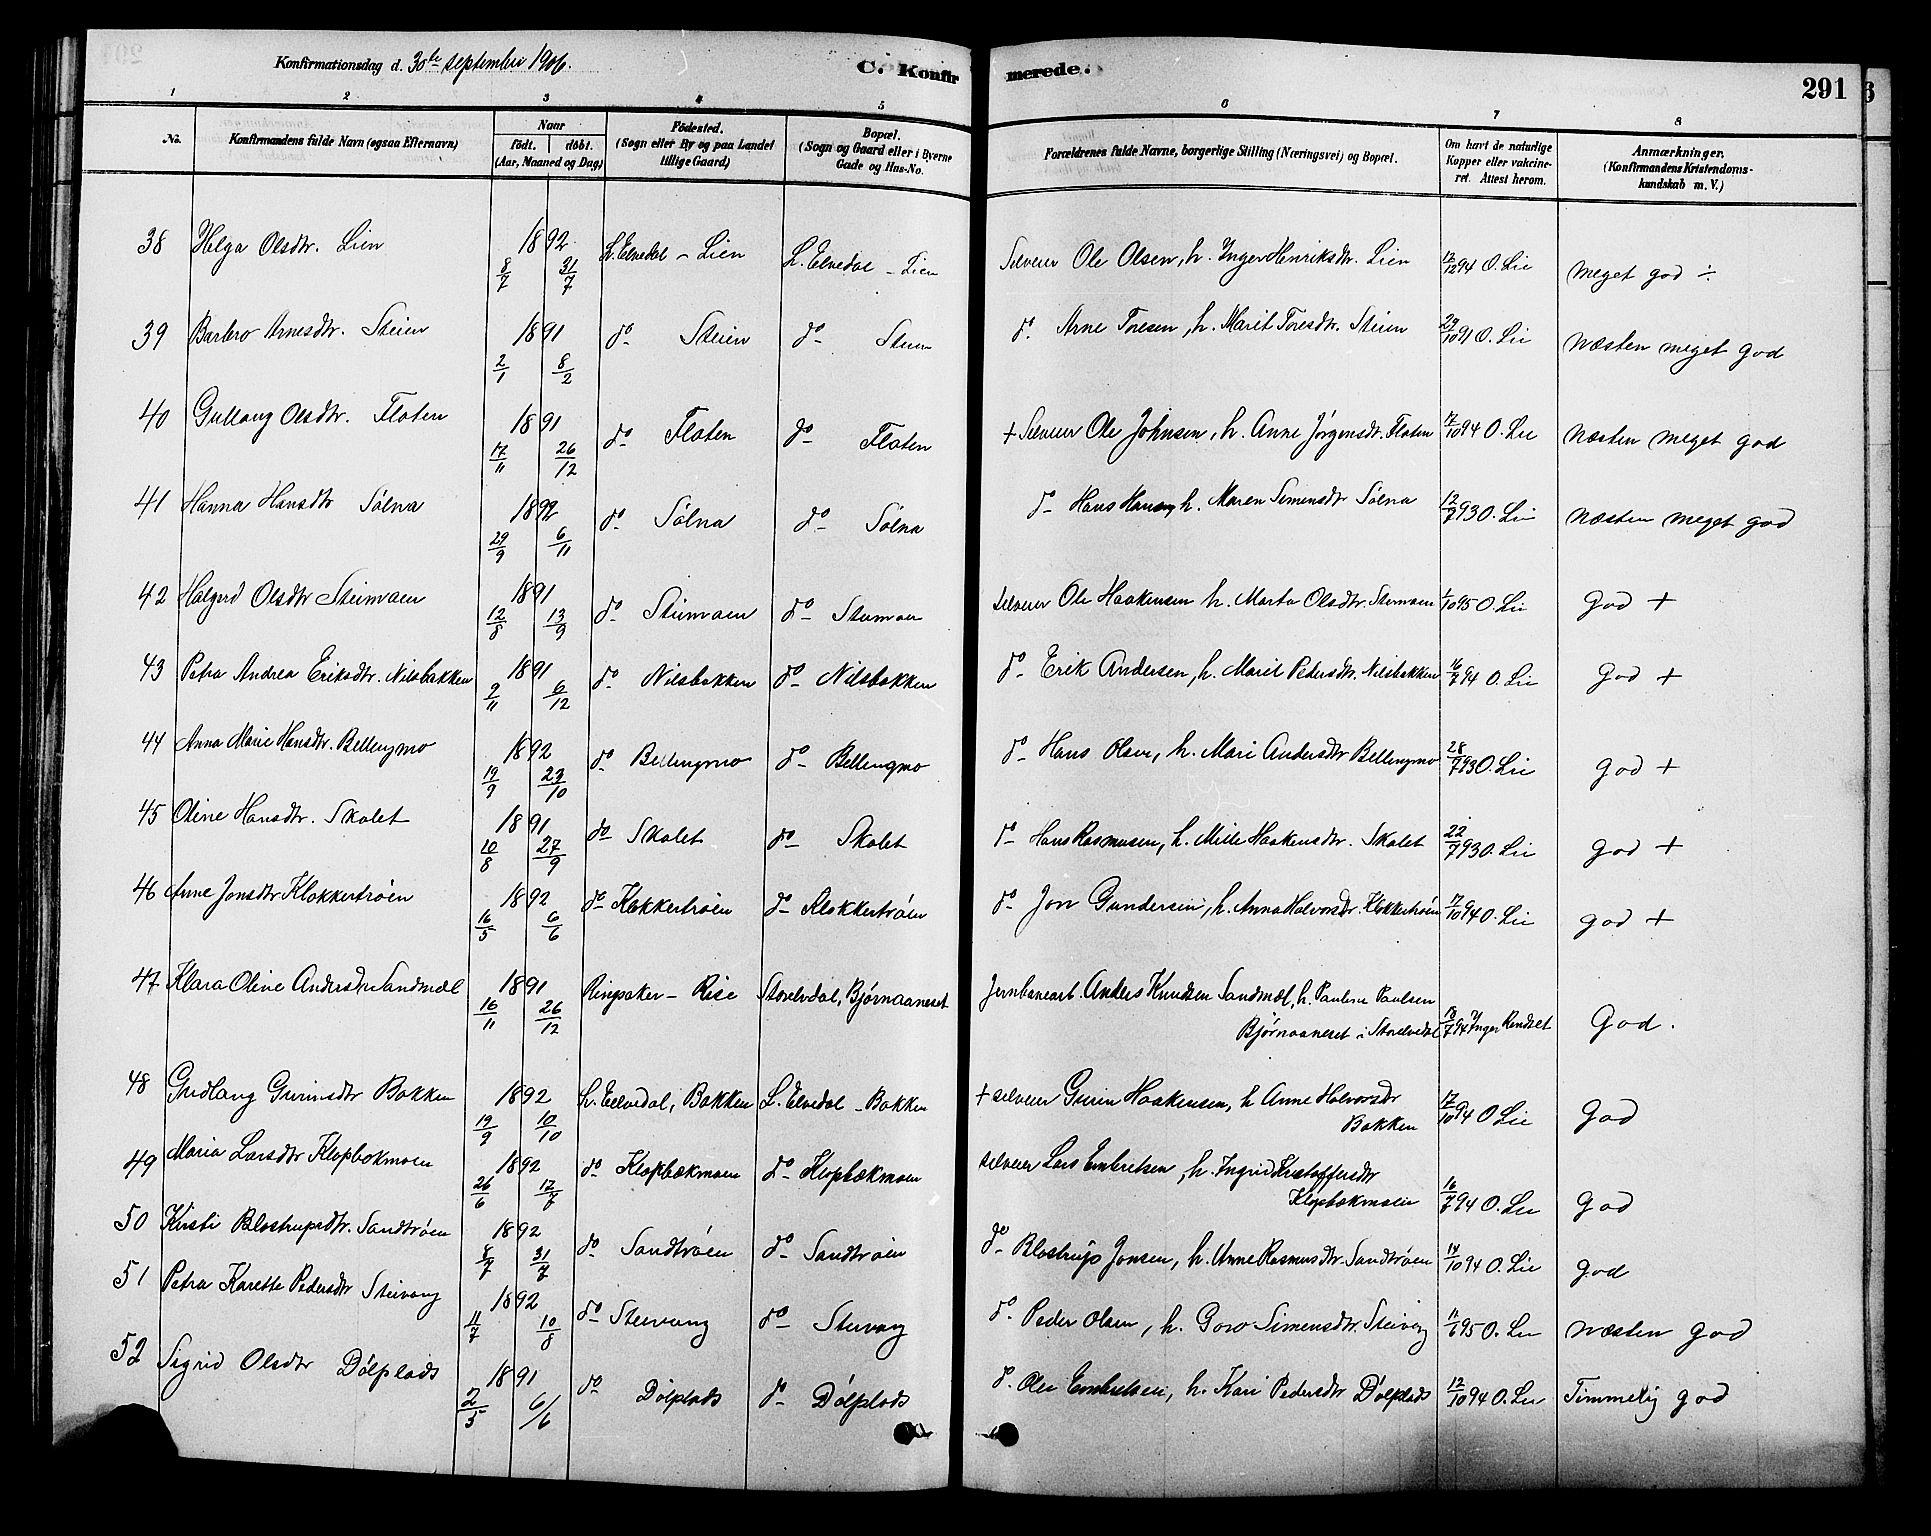 Konfirmationsdag d. 30te september 1906.
C. Konfirmerede.
291
1 2 3 4 5 6 7 8
No.
Konfirmandens fulde Navn (ogsaa Efternavn)
Naar
født. döbt.
(Aar, Maaned og Dag)
Födested.
(Sogn eller By og paa Landet
tillige Gaard)
Bopæl.
(Sogn og Gaard eller i Byerne
Gade og Hus-No.
Forældrenes fulde Navne, borgerlige Stilling (Næringsvei) og Bopæl.
Om havt de naturlige
Kopper eller vakcine-
ret. Attest herom.
Anmærkninger.
(Konfirmandens Kristendoms-
kundskab m. V.)
38 Helga Olsdtr. Lien 1892 8/7 31/7 L. Elvedal - Lien L. Elvedal - Lien Selveier Ole Olsen, h. Inger Henriksdtr. Lien 12/12 94 O. Lie meget god ÷
39 Barbro Arnesdtr. Steien 1891 2/1 8/2 do Steien do Steien do Arne Toresen, h. Marit Toresdtr. Steien 29/10 91 O. Lie næsten meget god
40 Gullaug Olsdtr. Floten 1891 17/11 26/12 do Floten do Floten + Selveier Ole Johnsen, h. Anne Jörgensdtr. Floten 17/10 94 O. Lie næsten meget god
41 Hanna Hansdtr Sölna 1892 29/9 6/11 do Sölna do Sölna do Hans Hansen, h. Maren Simensdtr Sölna 12/7 93 O. Lie næsten meget god
42 Halgerd Olsdtr Steimoen 1891 12/8 13/9 do Steimoen do Steimoen selveier Ole Haakensen h. Marta Olsdtr. Steimoen 1/10 95 O. Lie god +
43 Petra Andrea Eriksdtr. Nilsbakken 1891 9/11 6/12 do Nilsbakken do Nilsbakken do Erik Andersen, h. Marit Pedersdtr. Nilsbakken 16/7 94 O. Lie god +
44 Anna Marie Hansdtr. Bellingmo 1892 19/9 23/10 do Bellingmo do Bellingmo do Hans Olsen, h. Mari Andersdtr Bellingmo 28/7 93 O. Lie god +
45 Oline Hansdtr. Skolet 1891 10/8 27/9 do Skolet do Skolet do Hans Rasmusen, h. Mille Haakensdtr. Skolet 22/7 93 O. Lie god +
46 Anne Jonsdtr Klokkertröen 1892 16/5 6/6 do Klokkertröen do Klokkertröen do Jon Gundersen, h. Anna Halvorsdtr. Klokkertröen 17/10 94 O. Lie god +
47 Klara Oline Andersdtr Sandmæl 1891 16/11 26/12 Ringsaker - Rise Storelvdal, Bjørnaaneset Jernbanearb. Anders Knudsen Sandmæl, h. Pauline Paulsen
Bjørnaaneset i Storelvdal 18/7 94 Inger Rendset God.
48 Gudlaug Gurinsdtr Bakken 1892 19/9 10/10 L. Elvedal, Bakken L. Elvedal - Bakken + selveier Gurin Haakensen, h Anne Halvorsdtr
Bakken 17/10 94 O Lie god
49 Maria Larsdtr Klopbækmoen 1892 26/6 17/7 do Klopbækmoen do Klopbækmoen selveier Lars Embretsen, h. Ingrid Kristoffersdtr
Klopbækmoen 16/7 94 O. Lie god
50 Kirsti Blostrupsdtr. Sandtröen 1892 8/7 31/7 do Sandtröen do Sandtröen do Blostrup Jonsen, h. Anne Rasmusdtr. Sandtröen 14/10 94 O. Lie god
51 Petra Karette Pedersdtr Steivang 1892 11/7 10/8 do Steivang do Steivang do Peder Olsen, h. Goro Simensdtr. Steivang 11/6 95 O. Lie næsten god
52 Sigrid Olsdtr Dölplads 1891 2/5 6/6 do Dölplads do Dölplads do Ole Embretsen, h. Kari Pedersdtr Dölplads 12/10 94 O. Lie Timmelig god